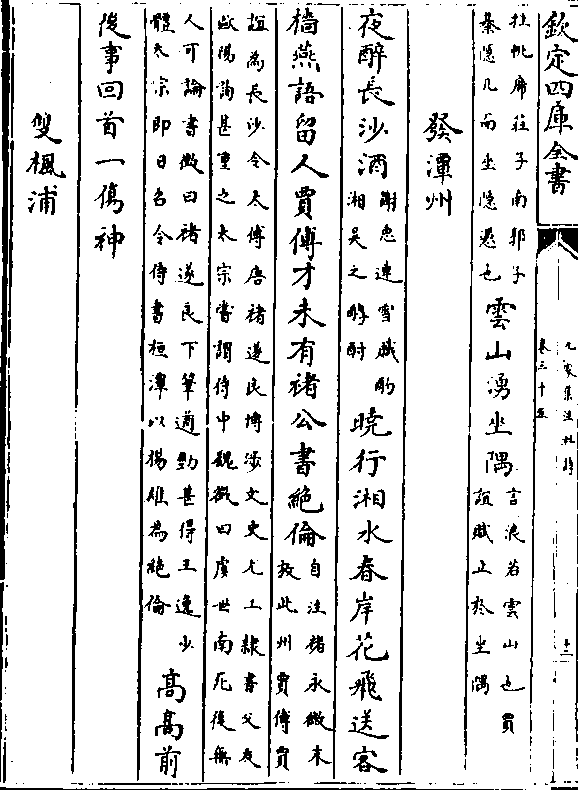 欽定四庫全書
九家集注杜詩
卷三十五
十二
拄帆席莊子南郭子
綦隱几而坐隱憑也
雲山湧坐隅
言浪若雲山也賈
誼賦止於坐隅
發潭州
夜醉長沙酒
謝惠連雪賦酌
湘吳之醇酎
曉行湘水春岸花飛送客
檣燕語留人賈傅才未有褚公書絶倫
自注褚永徽末
放此州賈傅賈
誼為長沙令太傅唐褚遂良博涉文史尤工隸書父友
歐陽詢甚重之太宗嘗謂侍中魏徵曰虞世南死後無
人可論書徵曰褚遂良下筆遒勁甚得王逸少
體太宗即日召令侍書桓譚以楊雄為絶倫
高高前
後事回首一傷神
雙楓浦